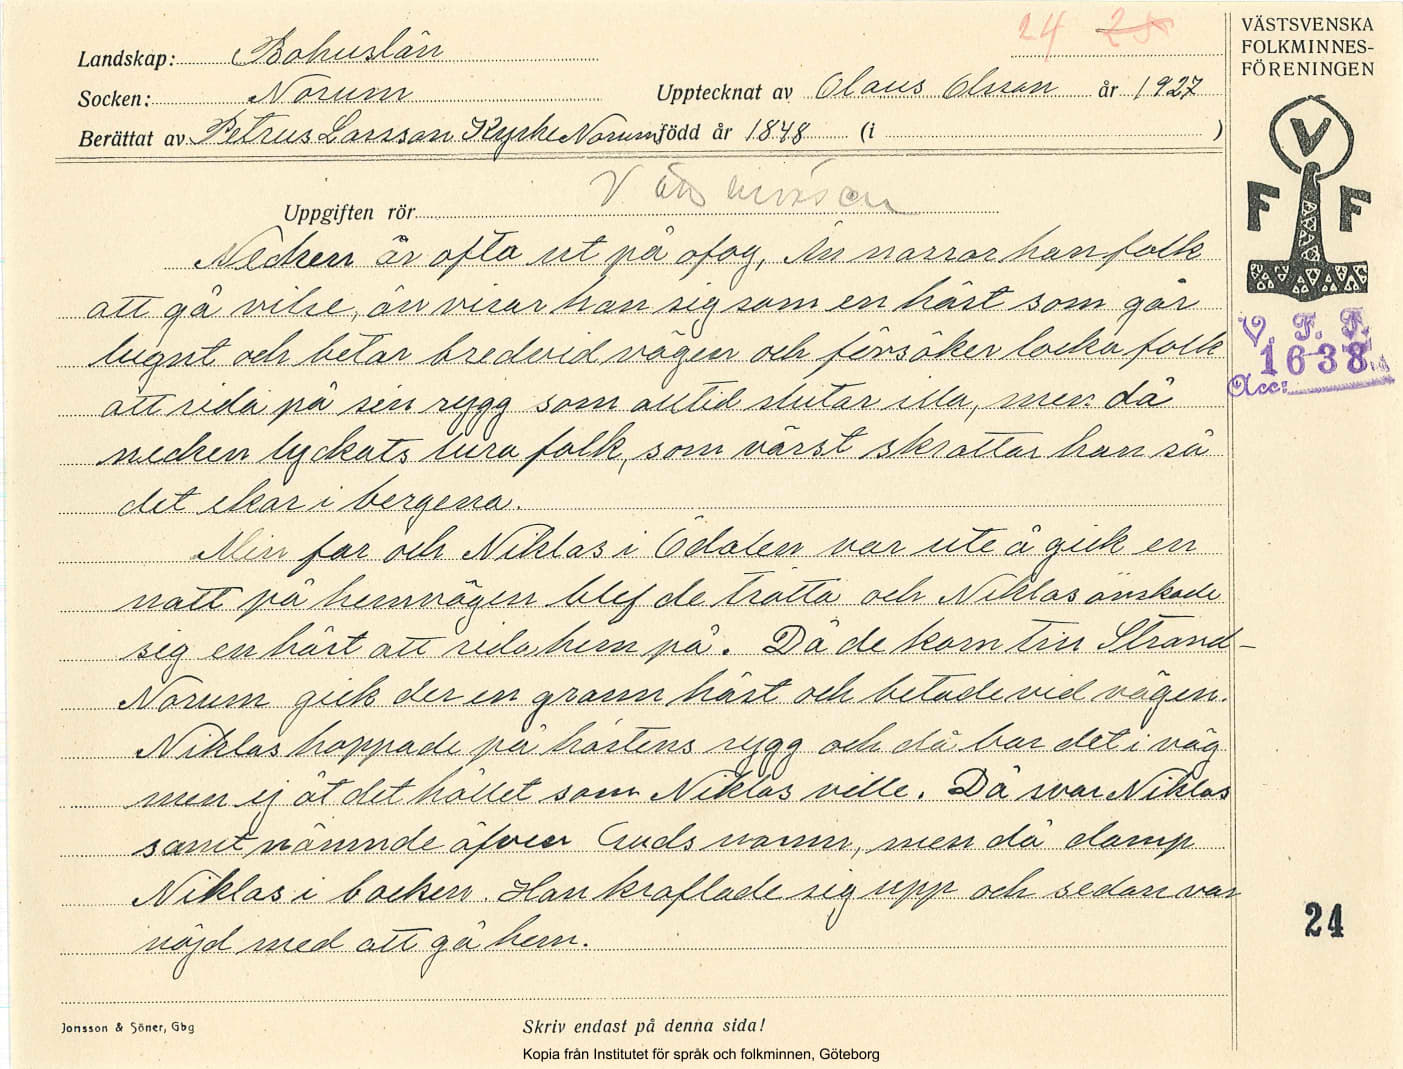 24 25
VÄSTSVENSKA
FOLKMINNES-
FÖRENINGEN
Landskap: Bohuslän
Socken: Norum
Upptecknat av Olaus Olsson år 1927
Berättat av Petrus Larsson Kyrke Norum född år 1848 (i )
V
F F
Uppgiften rör
Necken är ofta ut på ofog, än narrar han folk
att gå vilse, än visar han sig som en häst som går
lugnt och betar bredvid vägen och försöker locka folk
att rida på sin rygg som alltid slutar illa, men då
necken lyckats lura folk, som värst skrattar han så
det ekar i bergena.
Min far och Niklas i Ödalen var ute å gick en
natt på hemvägen blef de trötta och Niklas önskade
sig en häst att rida hem på. Då de kom till Strand-
Norum gick der en grann häst och betade vid vägen.
Niklas hoppade på hästens rygg och då bar det i väg
men ej åt det hållet som Niklas ville. Då svor Niklas
samt nämnde äfven Guds namn, men då damp
Niklas i backen. Han kraflade sig upp och sedan var
nöjd med att gå hem.
V. F. F.
1638
Acc:
24
Jonsson & Söner, Gbg
Skriv endast på denna sida!
Kopia från Institutet för språk och folkminnen, Göteborg